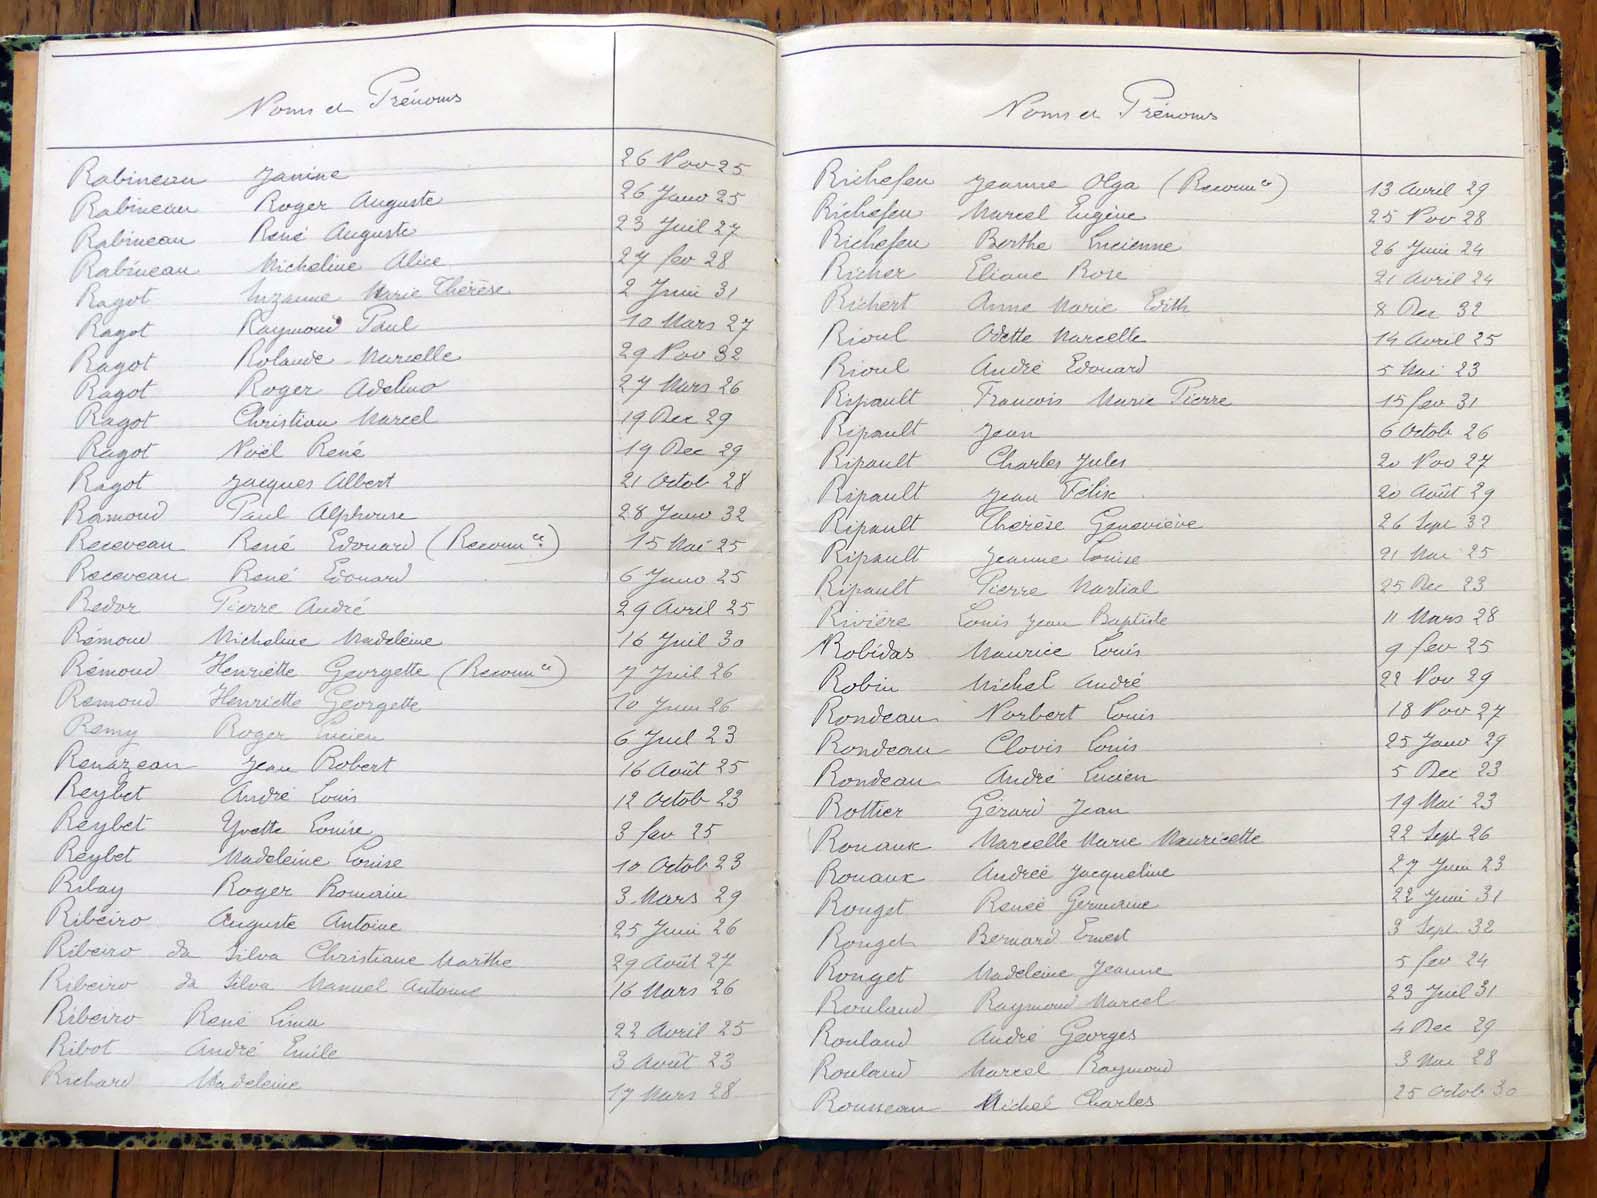 Noms et Prénoms
Rabineau Janine 26 Nov 25
Rabineau Roger Auguste 26 Janv 25
Rabineau René Auguste 23 Juil 27
Rabineau Micheline Alice 27 fev 28
Ragot Suzanne Marie Thérèse 2 Juin 31
Ragot Raymond Paul 10 Mars 27
Ragot Rolande Marcelle 29 Nov 32
Ragot Roger Adelino 27 Mars 26
Ragot Christian Marcel 19 Dec 29
Ragot Noël René 19 Dec 29
Ragot Jacques Albert 21 Octob 28
Ramond Paul Alphonse 28 Janv 32
Receveau René Edouard (Reconnce) 15 Mai 25
Receveau René Edouard 6 Janv 25
Redor Pierre André 29 Avril 25
Rémond Micheline Madeleine 16 Juil 30
Rémond Henriette Georgette (Reconnce) 7 Juil 26
Remond Henriette Georgette 10 Juin 26
Remy Roger Lucien 6 Juil 23
Renazeau Jean Robert 16 Août 25
Reybet André Louis 12 Octob 23
Reybet Yvette Louise 3 fev 25
Reybet Madeleine Louise 10 Octob 23
Ribay Roger Romain 3 Mars 29
Ribeiro Auguste Antoine 25 Juin 26
Ribeiro da Silva Christiane Marthe 29 Août 27
Ribeiro da Silva Manuel Antoine 16 Mars 26
Ribeiro René Lima 22 Avril 25
Ribot André Emile 3 Août 23
Richard Madeleine 17 Mars 28
Noms et Prénoms
Richefeu Jeanne Olga (Reconnce) 13 Avril 29
Richefeu Marcel Eugène 25 Nov 28
Richefeu Berthe Lucienne 26 Juin 24
Richer Eliane Rose 21 Avril 24
Richert Anne Marie Edith 8 Dec 32
Rioul Odette Marcelle 14 Avril 25
Rioul André Edouard 5 Mai 23
Ripault François Marie Pierre 15 fev 31
Ripault Jean 6 Octob 26
Ripault Charles Jules 20 Nov 27
Ripault Jean Félix 20 Août 29
Ripault Thérèse Geneviève 26 Sept 32
Ripault Jeanne Louise 21 Mai 25
Ripault Pierre Martial 25 Dec 23
Rivière Louis Jean Baptiste 11 Mars 28
Robidas Maurice Louis 9 fev 25
Robin Michel André 22 Nov 29
Rondeau Norbert Louis 18 Nov 27
Rondeau Clovis Louis 25 Janv 29
Rondeau André Lucien 5 Dec 23
Rottier Gérard Jean 19 Mai 23
Rouaux Marcelle Marie Mauricette 22 Sept 26
Rouaux Andrée Jacqueline 27 Juin 23
Rouget Renée Germaine 22 Juin 31
Rouget Bernard Ernest 3 Sept 32
Rouget Madeleine Jeanne 5 fev 24
Rouland Raymond Marcel 23 Juil 31
Rouland André Georges 4 Dec 29
Rouland Marcel Raymond 3 Mai 28
Rousseau Michel Charles 25 Octob 30